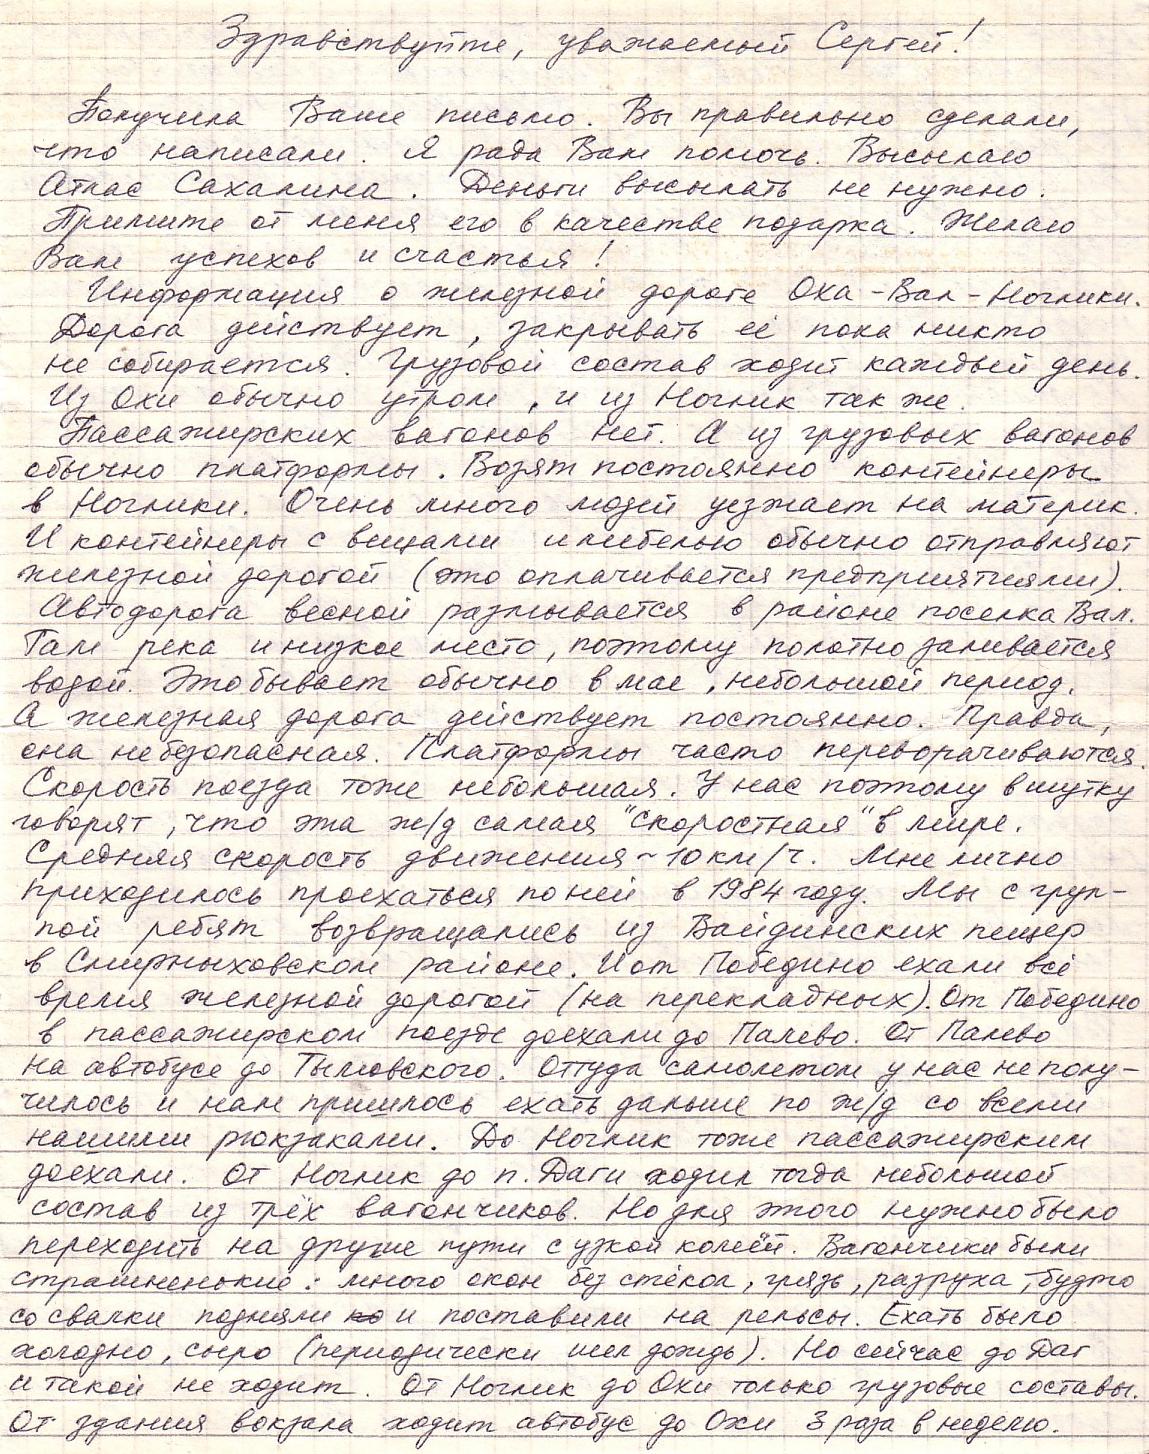 Здравствуйте, уважаемый Сергей!
Получила Ваше письмо. Вы правильно сделали,
что написали. Я рада Вам помочь. Высылаю
Атлас Сахалина. Деньги высылать не нужно.
Примите от меня его в качестве подарка. Желаю
Вам успехов и счастья!
Информация о железной дороге Оха-Вал-Ноглики.
Дорога действует, закрывать её пока никто
не собирается. Грузовой состав ходит каждый день.
Из Охи обычно утром, и из Ноглик также.
Пассажирских вагонов нет. А из грузовых вагонов
обычно платформы. Возят постоянно контейнеры
в Ноглики. Очень много людей уезжает на материк.
И контейнеры с вещами и мебелью обычно отправляют
железной дорогой (это оплачивается предприятиями).
Автодорога весной размывается в районе поселка Вал.
Там река и низкое место, поэтому полотно заливается
водой. Это бывает обычно в мае, небольшой период.
А железная дорога действует постоянно. Правда,
она небезопасная. Платформы часто переворачиваются.
Скорость поезда тоже небольшая. У нас поэтому в шутку
говорят, что эта ж/д самая "скоростная" в мире.
Средняя скорость движения ~ 10 км/ч. Мне лично
приходилось проехаться по ней в 1984 году. Мы с груп-
пой ребят возвращались из Вайдинских пещер
в Смирныховском районе. И от Победино ехали всё
время железной дорогой (на перекладных). От Победино
в пассажирском поезде доехали до Палево. От Палево
на автобусе до Тымовского. Оттуда самолетом у нас не полу-
чилось и нам пришлось ехать дальше по ж/д со всеми
нашими рюкзаками. До Ноглик тоже пассажирским
доехали. От Ноглик до п. Даги ходил тогда небольшой
состав из трёх вагончиков. Но для этого нужно было
переходить на другие пути с узкой колеёй. Вагончики были
страшненькие: много окон без стёкол, грязь, разруха, будто
со свалки подняли и поставили на рельсы. Ехать было
холодно, сыро (периодически шел дождь). Но сейчас до Даг
и такой не ходит. От Ноглик до Охи только грузовые составы.
От здания вокзала ходит автобус до Охи 3 раза в неделю.